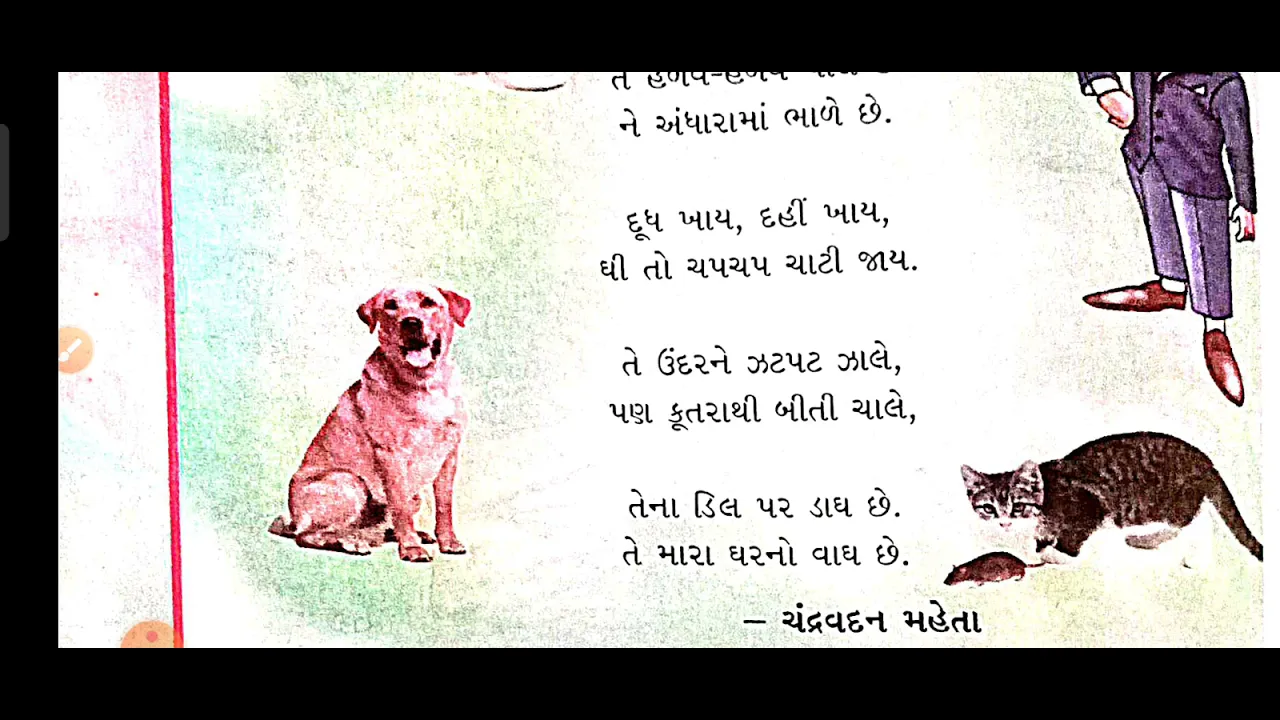 તે હળવે-હળવે
ને અંધારામાં ભાળે છે.
દૂધ ખાય, દહીં ખાય,
ઘી તો ચપચપ ચાટી જાય.
તે ઉંદરને ઝટપટ ઝાલે,
પણ કૂતરાથી બીતી ચાલે,
તેના ડિલ પર ડાઘ છે.
તે મારા ઘરનો વાઘ છે.
– ચંદ્રવદન મહેતા